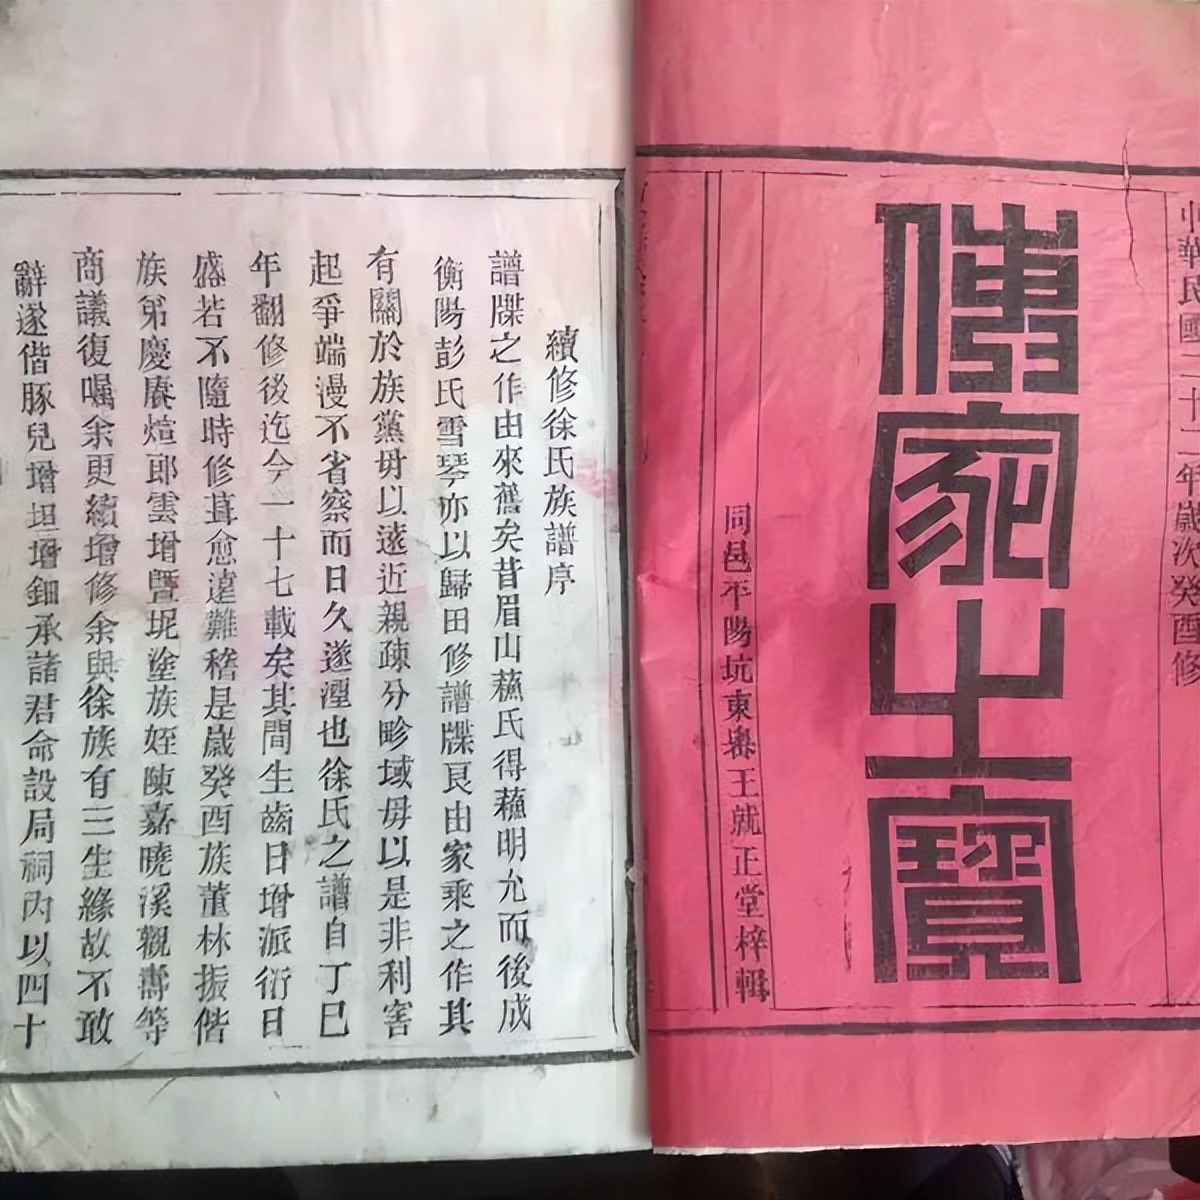 中華民國二十二年歲次癸酉修
傳家之寶
同邑平陽坑東嶴王就正堂梓輯
續修徐氏族譜序
譜牒之作由來舊矣昔眉山蘓氏得蘓明允而後成
衡陽彭氏雪琴亦以歸田修譜牒良由家乘之作其
有關於族黨毋以遠近親疎分畛域毋以是非利害
起爭端漫不省察而日久遂湮也徐氏之譜自丁巳
年翻修後迄今一十七載矣其間生齒日增派衍日
盛若不隨時修葺愈遠難稽是歲癸酉族董林振偕
族弟慶賡煊郎雲增暨坭塗族姪陳嘉曉溪觀壽等
商議復囑余更續增修余與徐族有三生緣故不敢
辭遂偕豚兒增坦增鈿承諸君命設局祠內以四十